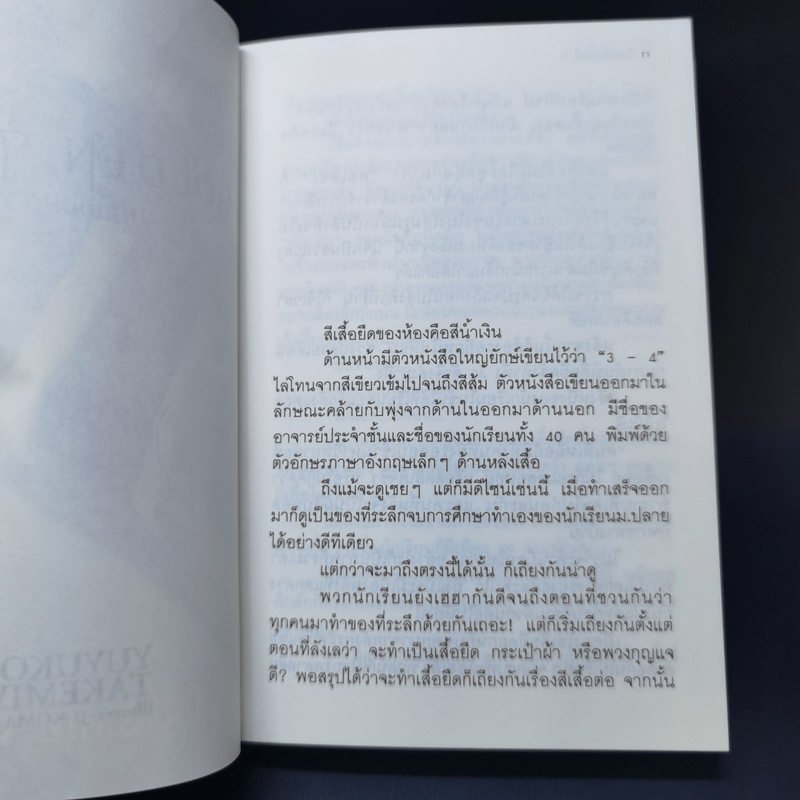 11
สีเสื้อยืดของห้องคือสีน้ำเงิน
ด้านหน้ามีตัวหนังสือใหญ่ยักษ์เขียนไว้ว่า “3 – 4”
ไล่โทนจากสีเขียวเข้มไปจนถึงสีส้ม ตัวหนังสือเขียนออกมาใน
ลักษณะคล้ายกับพุ่งจากด้านในออกมาด้านนอก มีชื่อของ
อาจารย์ประจำชั้นและชื่อของนักเรียนทั้ง 40 คน พิมพ์ด้วย
ตัวอักษรภาษาอังกฤษเล็กๆ ด้านหลังเสื้อ
ถึงแม้จะดูเชยๆ แต่ก็มีดีไซน์เช่นนี้ เมื่อทำเสร็จออก
มาก็ดูเป็นของที่ระลึกจบการศึกษาทำเองของนักเรียนม.ปลาย
ได้อย่างดีทีเดียว
แต่กว่าจะมาถึงตรงนี้ได้นั้น ก็เถียงกันน่าดู
พวกนักเรียนยังเฮฮากันดีจนถึงตอนที่ชวนกันว่า
ทุกคนมาทำของที่ระลึกด้วยกันเถอะ! แต่ก็เริ่มเถียงกันตั้งแต่
ตอนที่ลังเลว่า จะทำเป็นเสื้อยืด กระเป๋าผ้า หรือพวงกุญแจ
ดี? พอสรุปได้ว่าจะทำเสื้อยืดก็เถียงกันเรื่องสีเสื้อต่อ จากนั้น
YUYUKO
TAKEMIY